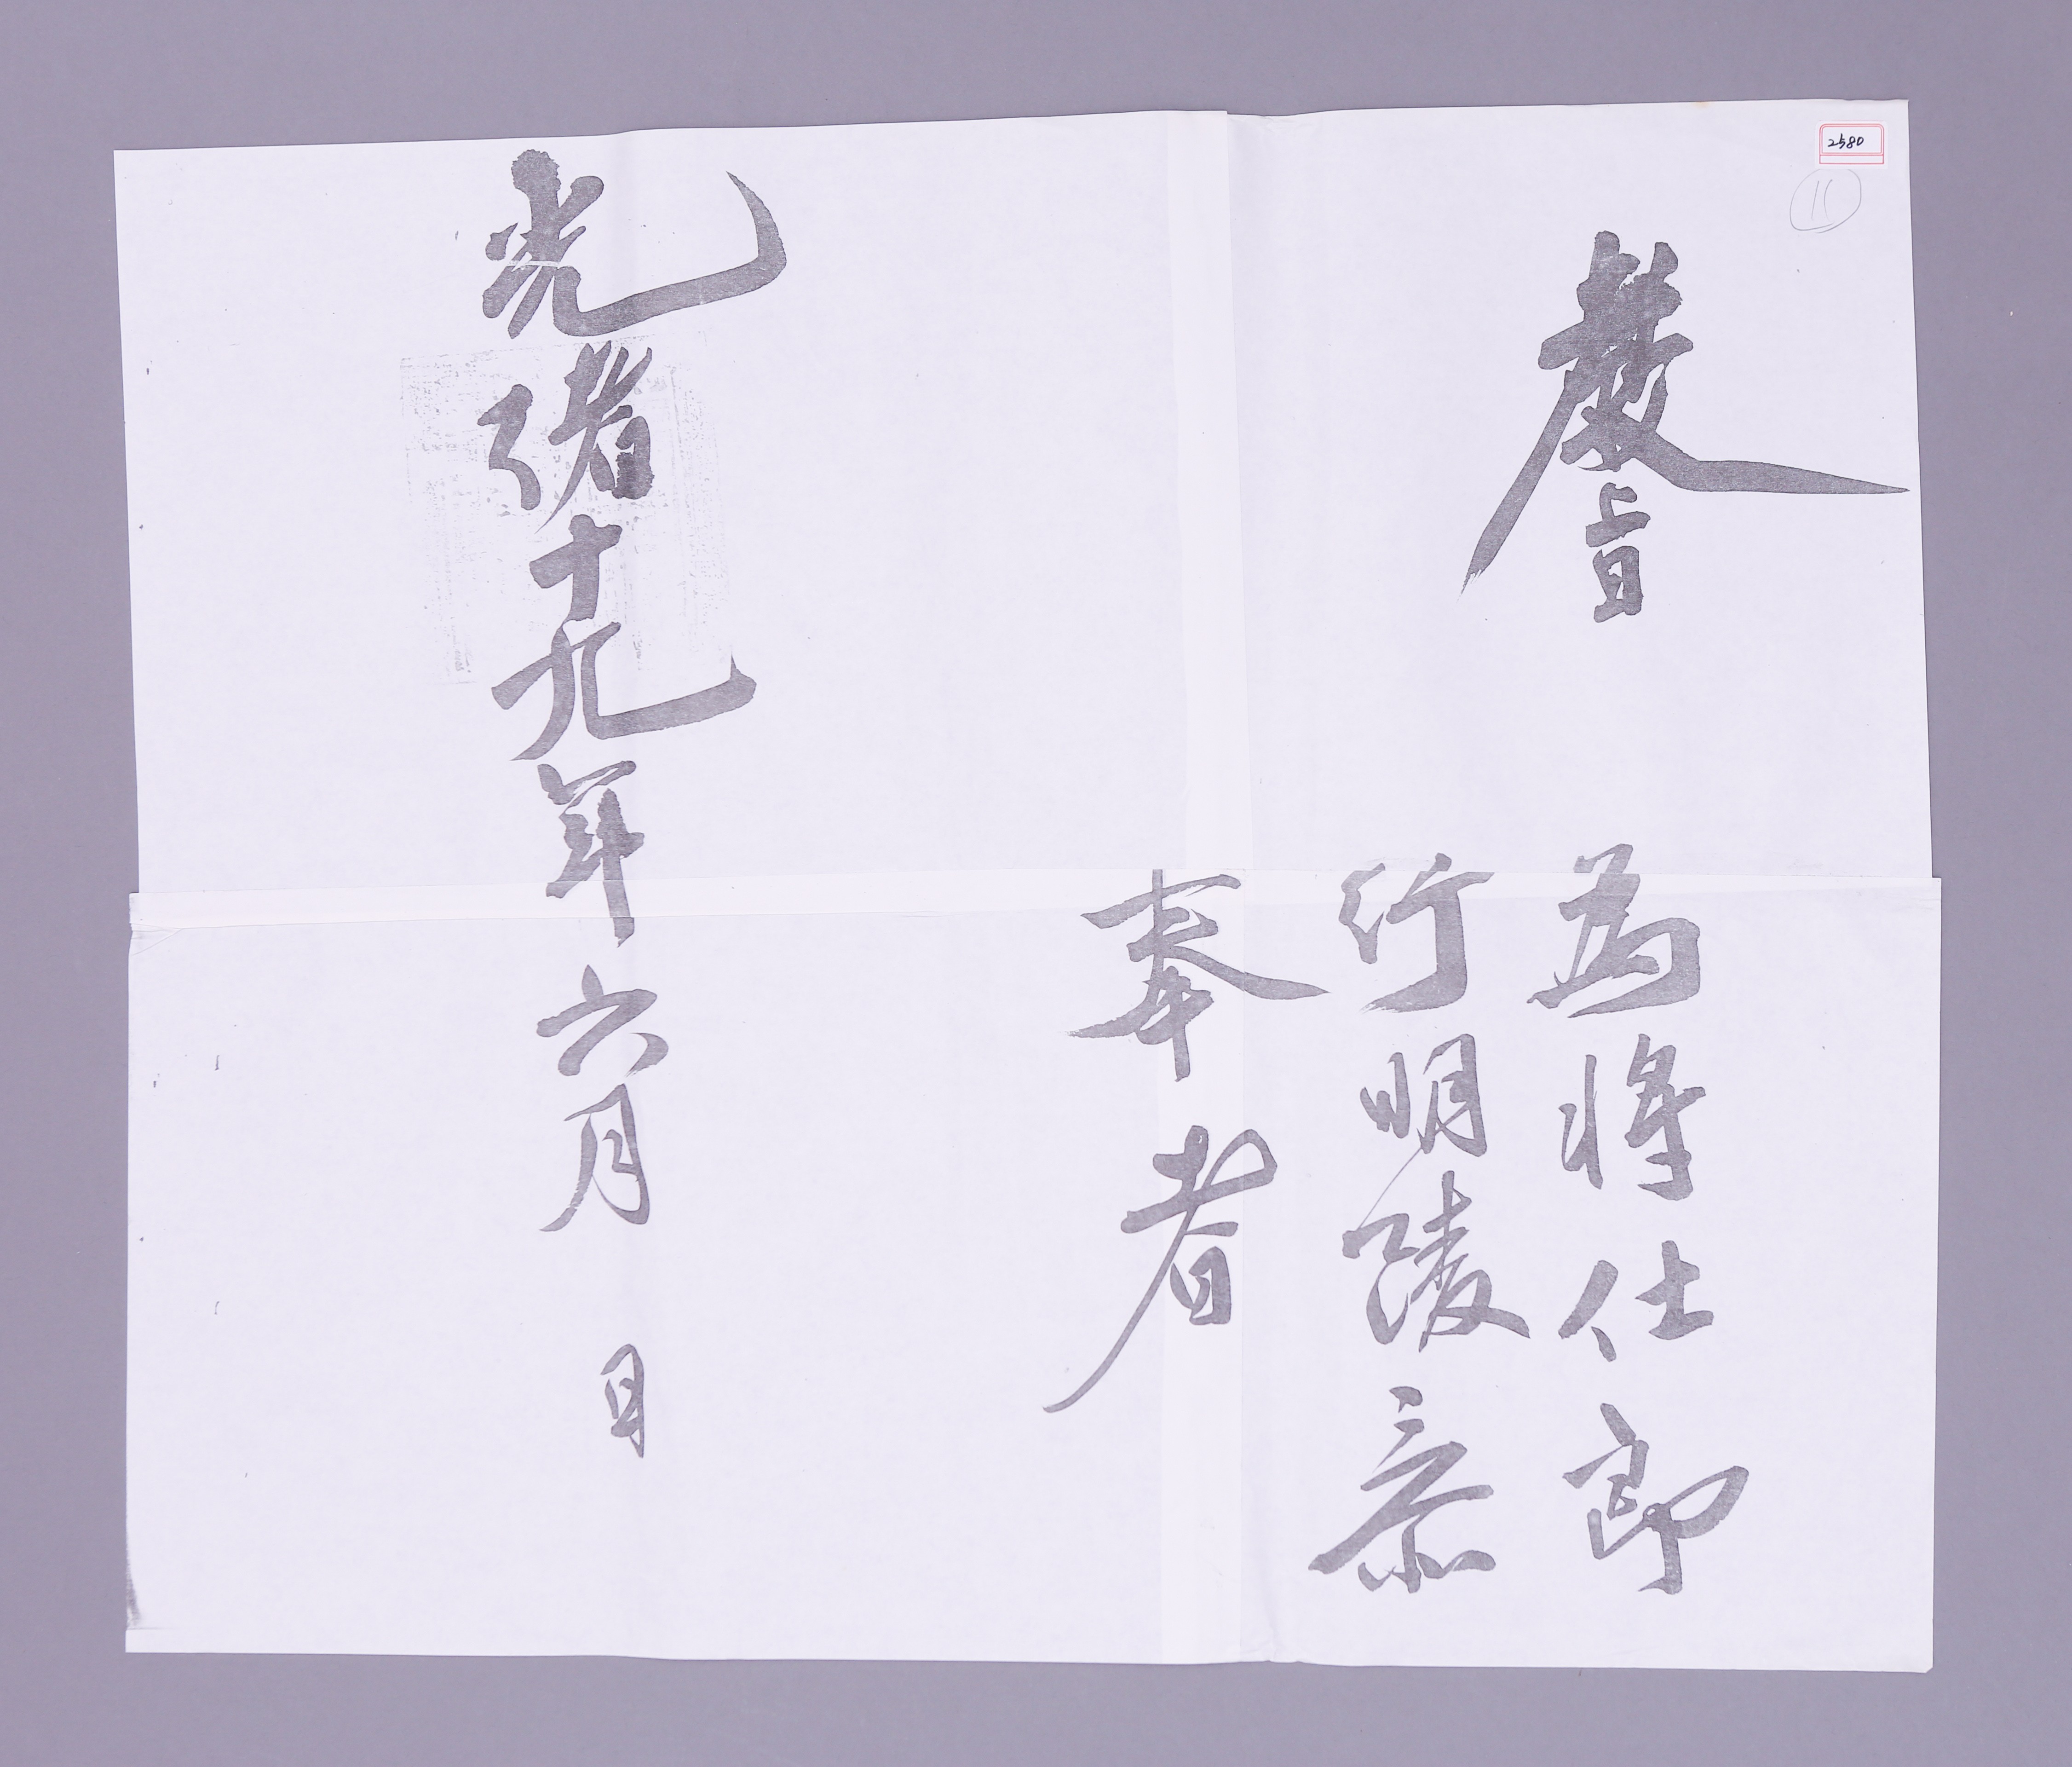 2580
11
敎旨
為將仕郎
行明陵叅
奉者
光緒十九年六月 日